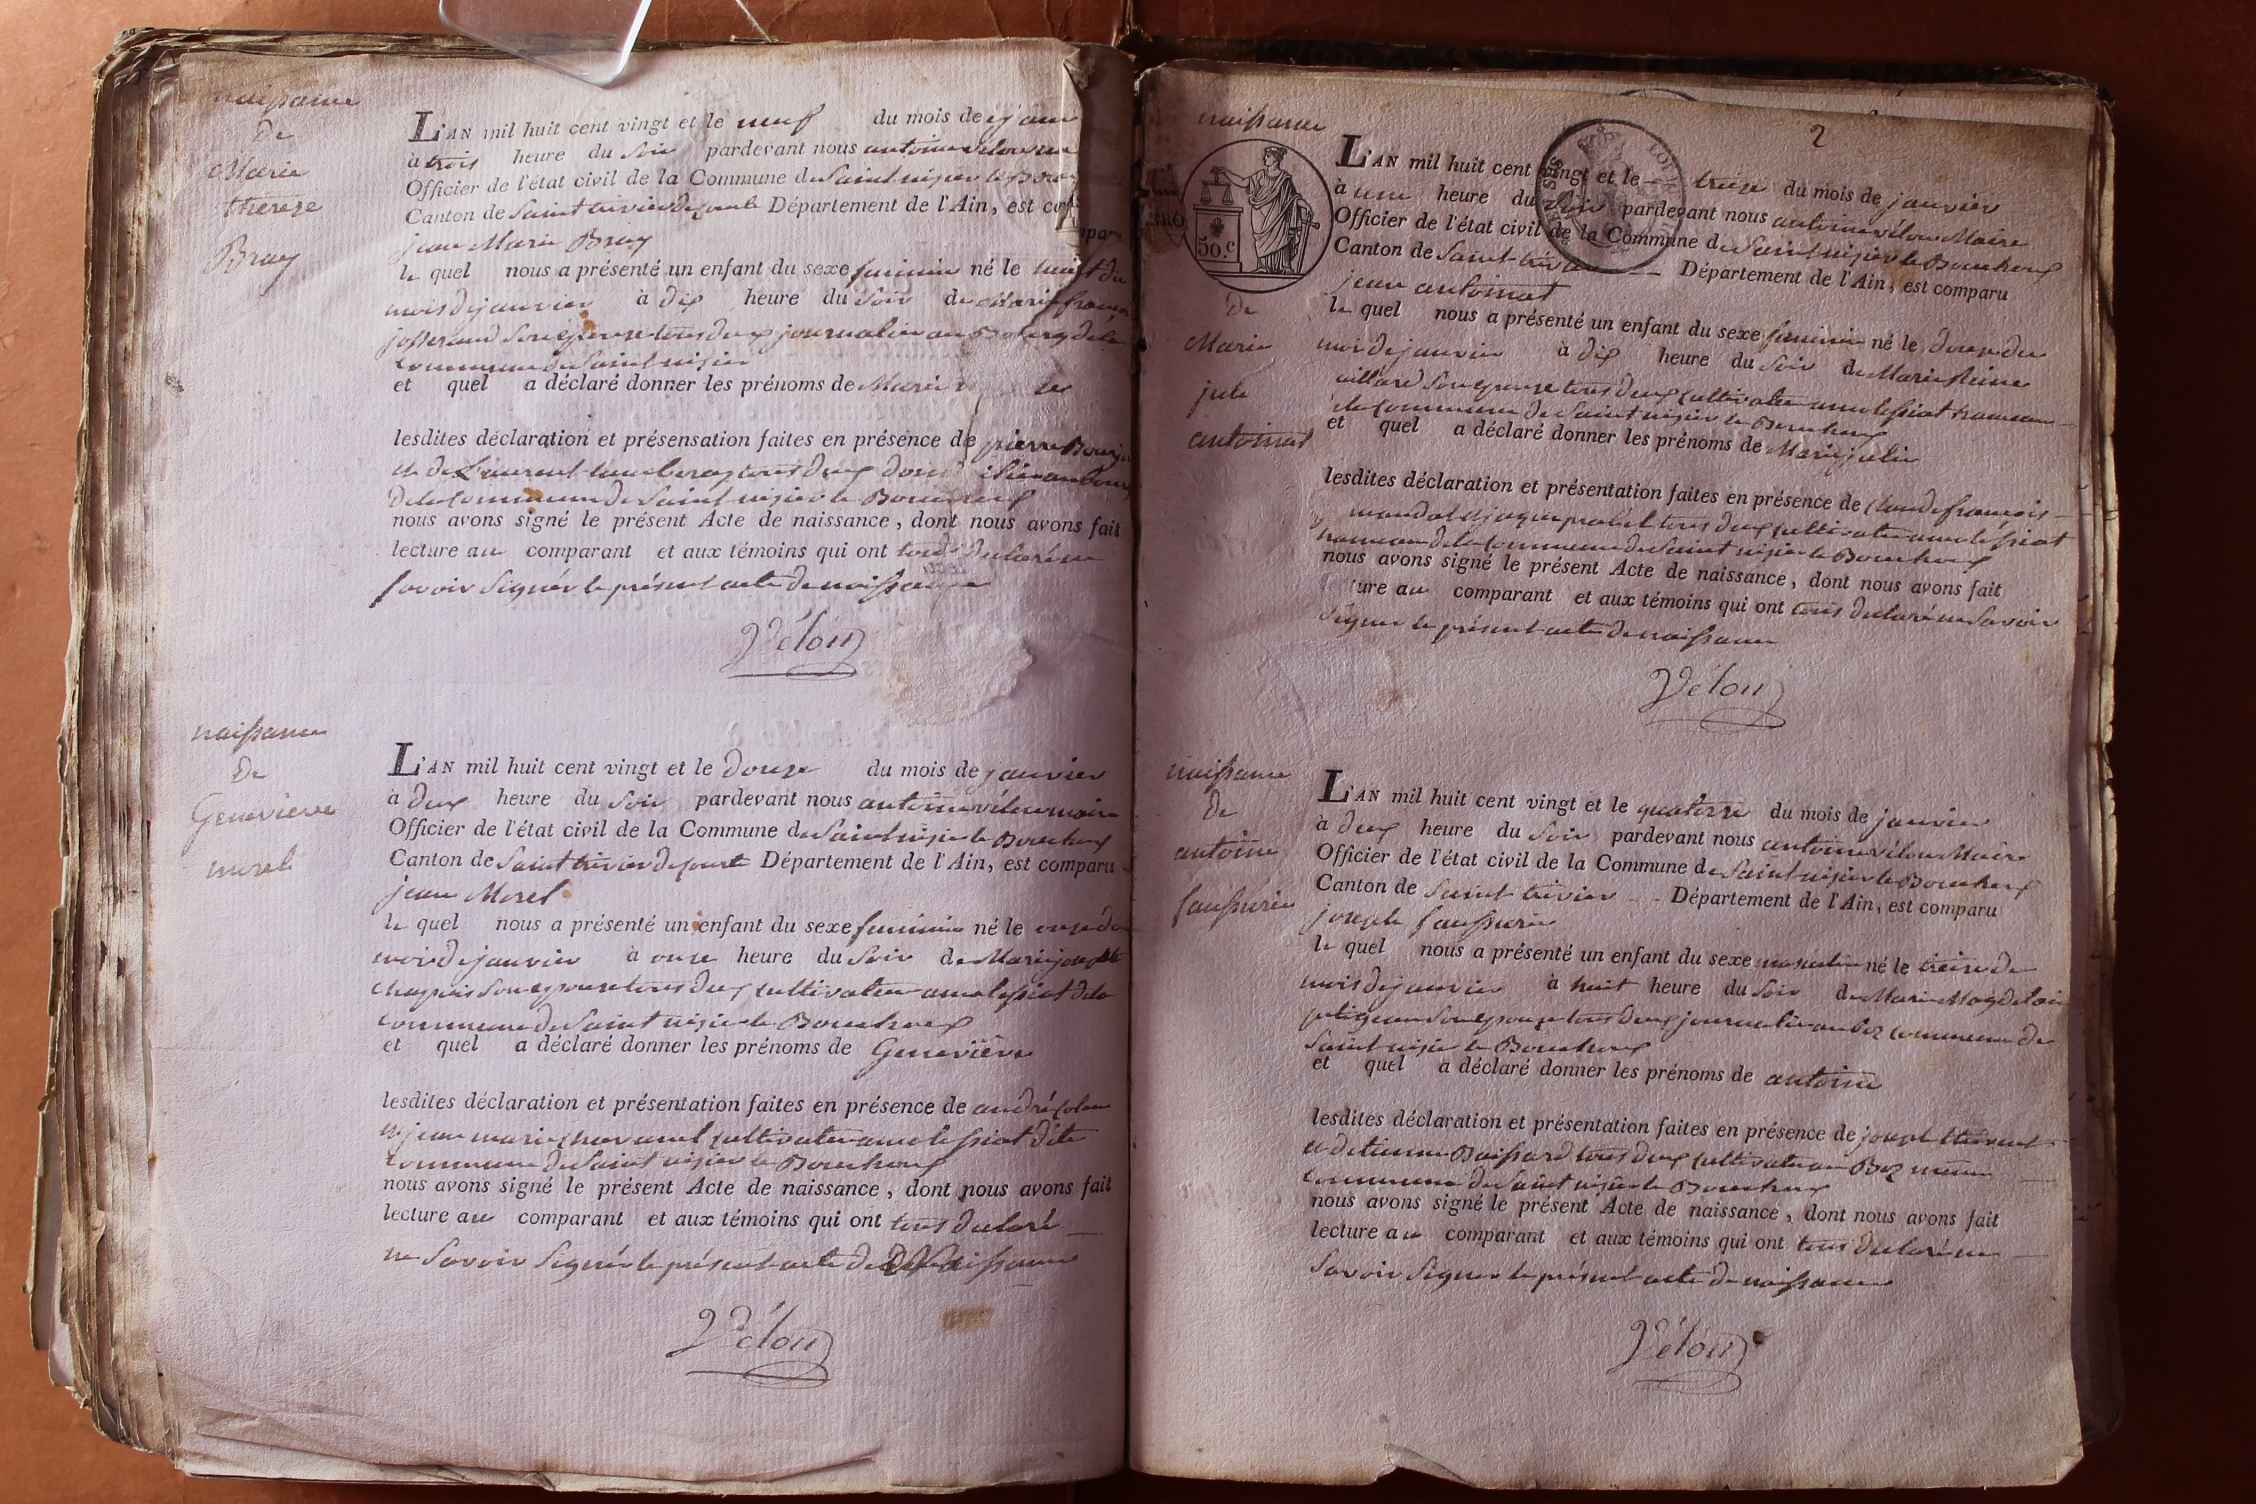 naissance
de
Marie
therese
Bray
L'AN mil huit cent vingt et le neuf du mois de
à trois heure du soir pardevant nous antoine vélon
Officier de l'état civil de la Commune de Saint nisier le
Canton de Saint trivier de court Département de l'Ain, est
jean Marie Bray
le quel nous a présenté un enfant du sexe feminin né le huit du
mois de janvier à dix heure du soir de Marie
josserand son epouse tous deux journalier au Bourg de la
commune de Saint nisier
et quel a déclaré donner les prénoms de Marie
lesdites déclaration et présensation faites en présence de pierre
et de Laurent tous deux
de la commune de Saint nisier le Bouchoux
nous avons signé le présent Acte de naissance, dont nous avons fait
lecture au comparant et aux témoins qui ont tous déclaré ne
savoir signér le présent acte de naissance
Vélon
naissance
de
Genevieve
morel
L'AN mil huit cent vingt et le douze du mois de janvier
à deux heure du soir pardevant nous antoine vélon maire
Officier de l'état civil de la Commune de Saint nisier le Bouchoux
Canton de Saint trivier de court Département de l'Ain, est comparu
jean Morel
le quel nous a présenté un enfant du sexe feminin né le onze du
mois de janvier à onze heure du soir de Marie josephte
son epouse tous deux cultivateur a molessiat de la
commune de Saint nisier le Bouchoux
et quel a déclaré donner les prénoms de Geneviève
lesdites déclaration et présentation faites en présence de andré
et jean marie cultivateur a molessiat dite
commune de Saint nisier le Bouchoux
nous avons signé le présent Acte de naissance, dont nous avons fait
lecture au comparant et aux témoins qui ont tous declaré
ne savoir signér le présent acte de Naissance
Vélon
2
naissance
50.c
de
Marie
julie
antoinat
L'AN mil huit cent vingt et le treize du mois de janvier
à une heure du soir pardevant nous antoine vélon Maire
Officier de l'état civil de la Commune de Saint nisier le Bouchoux
Canton de Saint trivier Département de l'Ain, est comparu
jean antoinat
le quel nous a présenté un enfant du sexe feminin né le douze du
mois de janvier à dix heure du soir de Marie Reine
son epouse tous deux cultivateur a molessiat hameau
de la commune de Saint nisier le Bouchoux
et quel a déclaré donner les prénoms de Marie julie
lesdites déclaration et présentation faites en présence de Claude françois
tous deux cultivateur a molessiat
hameau de la commune de Saint nisier le Bouchoux
nous avons signé le présent Acte de naissance, dont nous avons fait
lecture au comparant et aux témoins qui ont tous declaré ne savoir
signer le présent acte de naissance
Vélon
naissance
de
antoine
saussurin
L'AN mil huit cent vingt et le quatorze du mois de janvier
à deux heure du soir pardevant nous antoine vélon Maire
Officier de l'état civil de la Commune de Saint nisier le Bouchoux
Canton de Saint trivier Département de l'Ain, est comparu
joseph saussurin
le quel nous a présenté un enfant du sexe masculin né le treize de
mois de janvier à huit heure du soir de Marie Magdelaine
son epouse tous deux journalier au boz commune de
Saint nisier le Bouchoux
et quel a déclaré donner les prénoms de antoine
lesdites déclaration et présentation faites en présence de joseph thevenet
et d'etienne Boissard tous deux cultivateur au Boz même
commune de Saint nisier le Bouchoux
nous avons signé le présent Acte de naissance, dont nous avons fait
lecture au comparant et aux témoins qui ont tous declaré ne
savoir signer le présent acte de naissance
Vélon